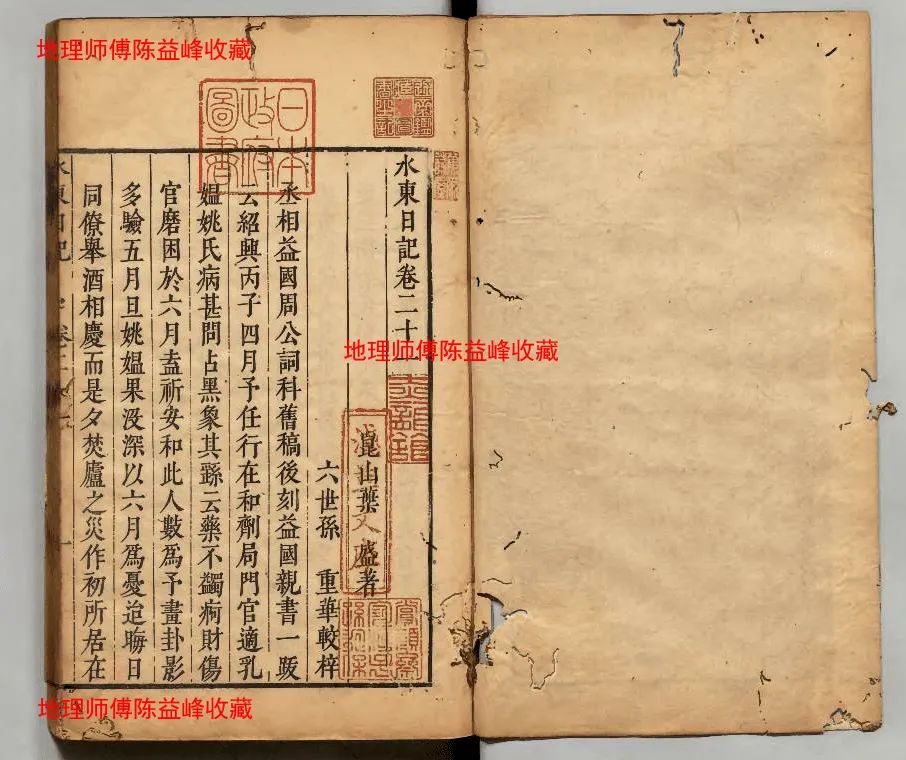 地理师傅陈益峰收藏
日本政府圖書
水東日記卷二十一
地理师傅陈益峰收藏
崑山葉 盛著
六世孫 重華較梓
丞相益國周公詞科舊稿後刻益國親書一䟦
云紹興丙子四月予任行在和劑局門官適乳
媼姚氏病甚問占黑象其繇云藥不蠲疴財傷
官磨困於六月盍祈安和此人數爲予畫卦影
多驗五月旦姚媼果沒深以六月爲憂迨晦日
同僚舉酒相慶而是夕焚廬之災作初所居在
水東日記
地理师傅陈益峰收藏